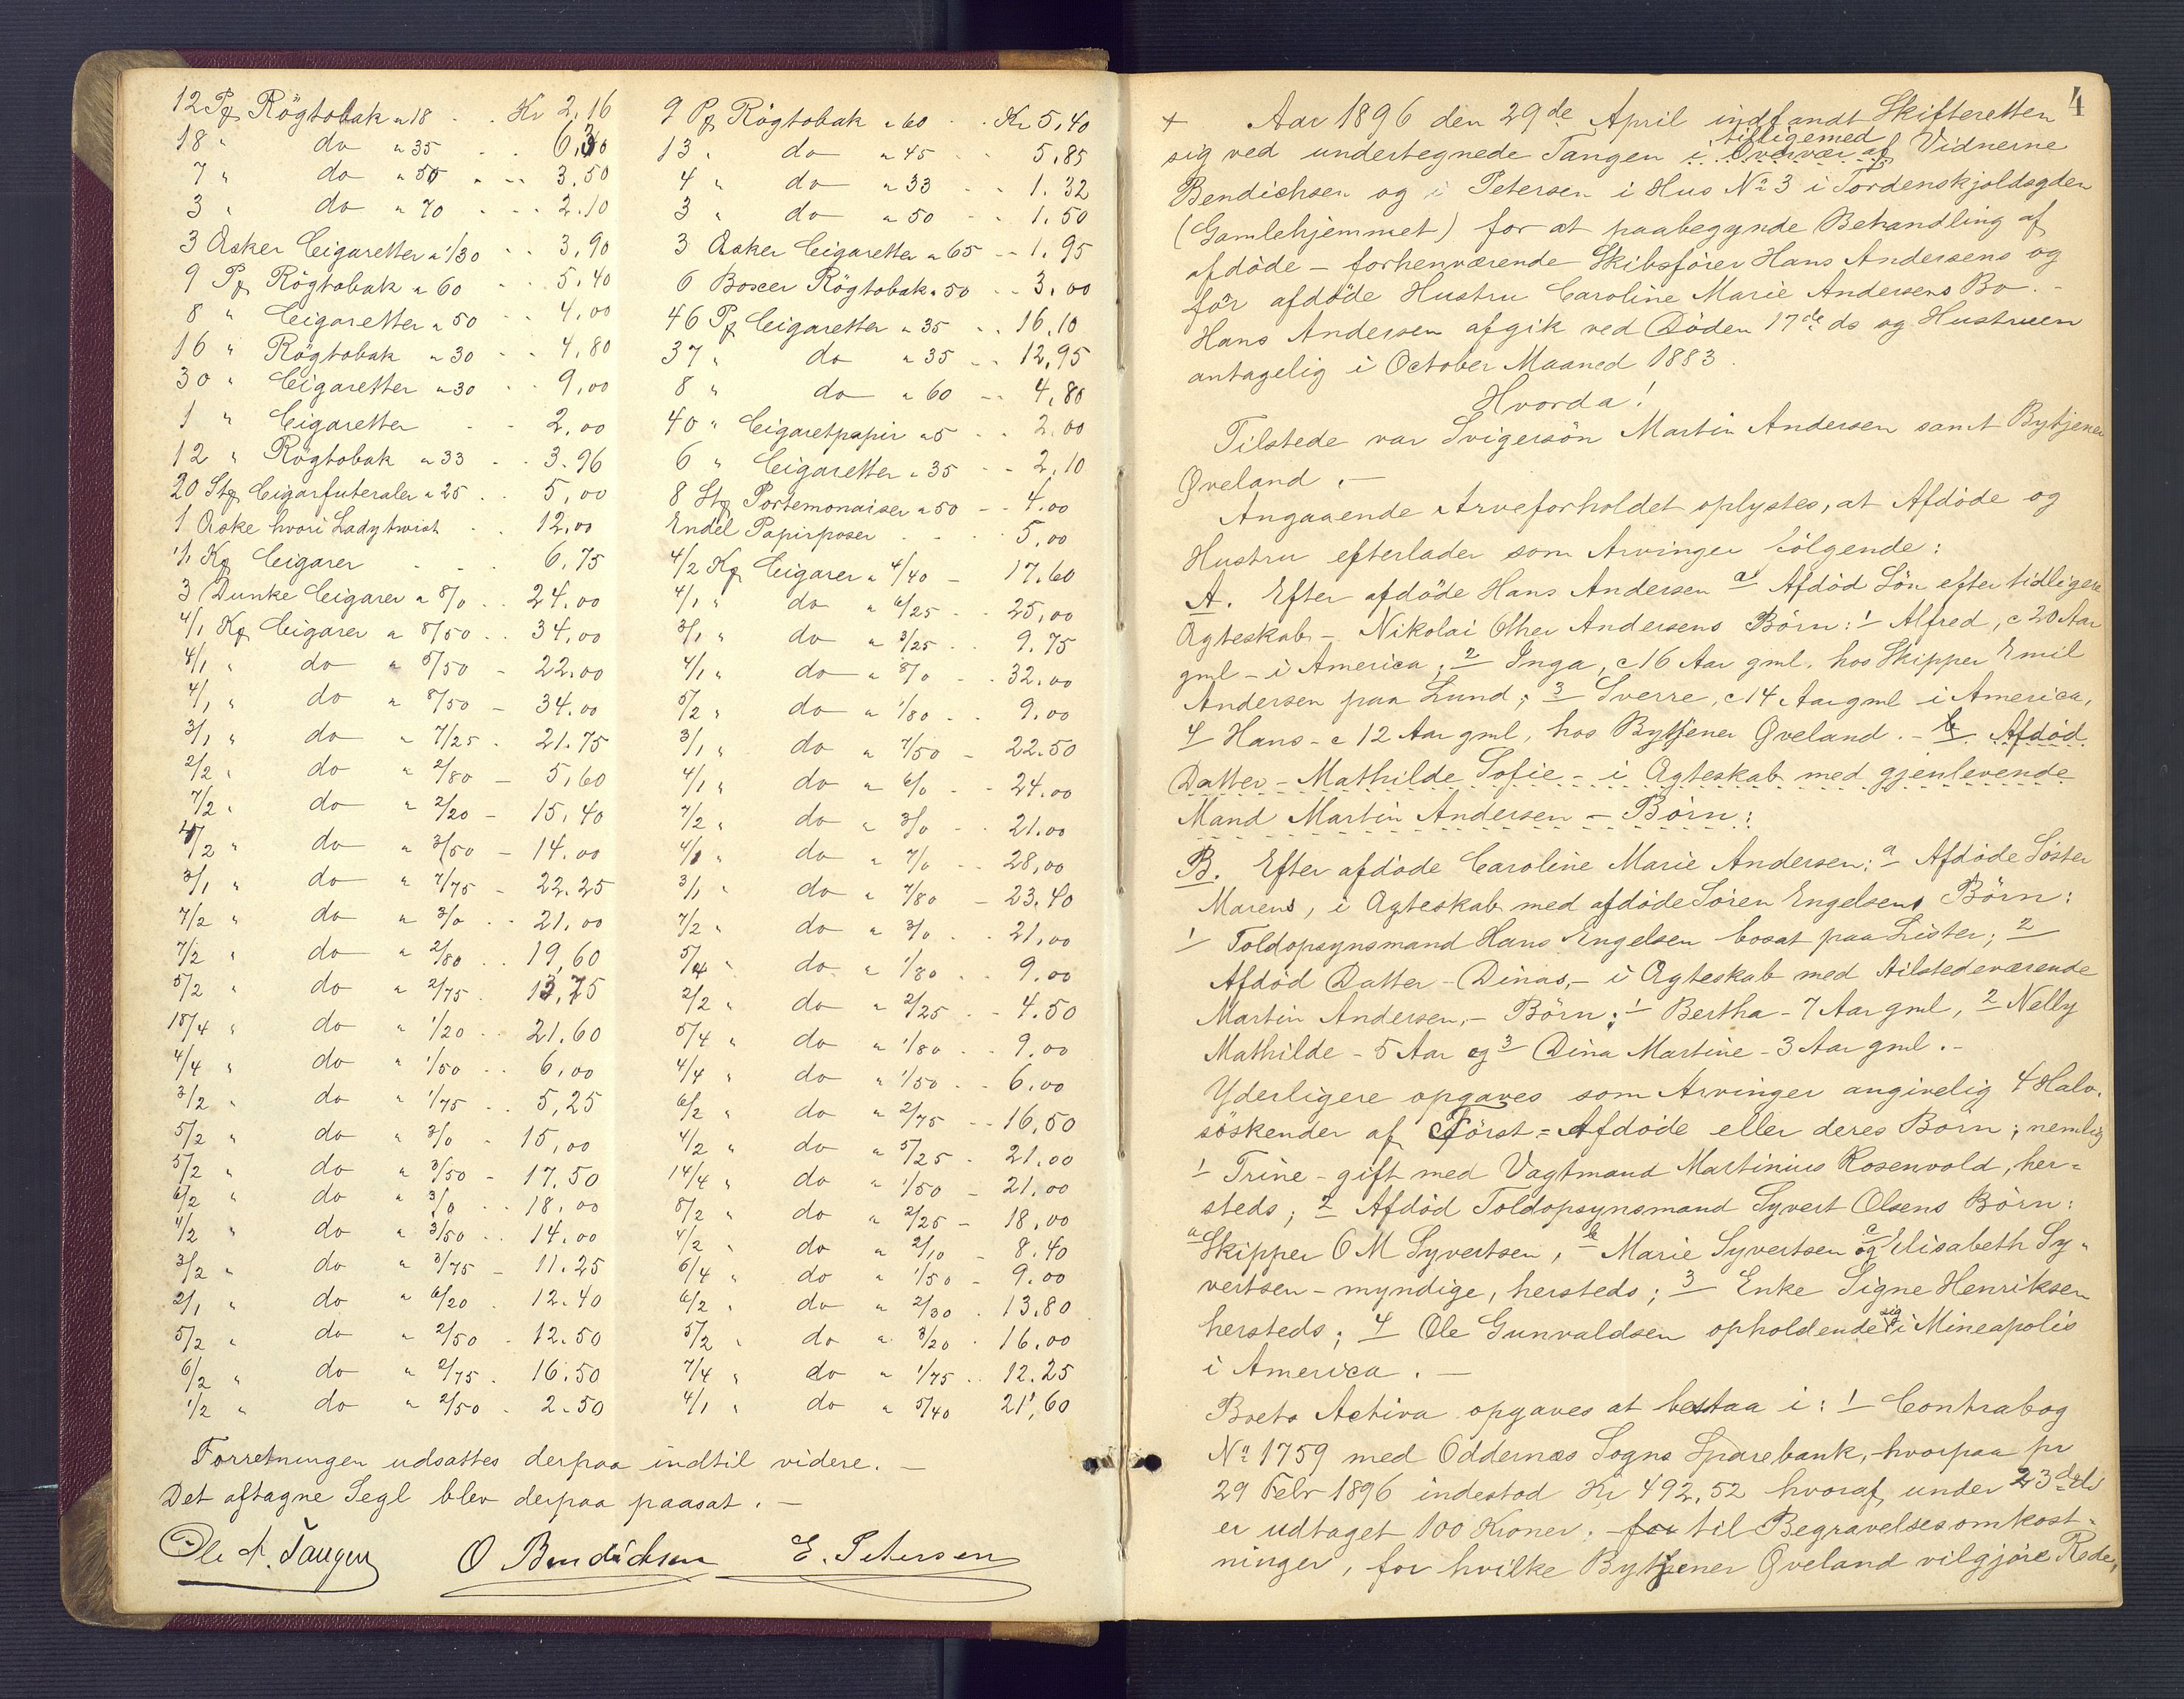 12 Pf Rögtobak a 18 . . Kr 2,16
18 " do a 35 . . 6,30
7 " do a 50 . . 3,50
3 " do a 70 . . 2.10
3 Æsker Cigaretter a 1/30 . . 3,90
9 Pf Rögtobak a 60 . . 5,40
8 " Cigaretter a 50 . . 4,00
16 " Rögtobak a 30 . . 4,80
30 " Cigaretter a 30 . . 9,00
1 " Cigaretter . . 2,00
12 " Rögtobak a 33 . . 3.96
20 Stf Cigarfuteraler a 25 . . 5,00
1 Æske hvori Ladytwist . 12,00
1/1 Kf Cigarer . . . 6,75
3 Dunke Cigarer a 8/0 . . 24,00
4/1 Kf Cigarer a 8/50 . . 34,00
4/1 " do a 5/50 - 22.00
4/1 " do a 8/50 - 34.00
3/1 " do a 7/25 . 21.75
2/2 " do a 2/80 - 5,60
7/2 " do a 2/20 - 15,40
4/2 " do a 3/50 - 14.00
3/1 " do a 7/75 - 22.25
7/2 " do a 3/0 . . 21,00
7/2 " do a 2/80 . . 19,60
5/2 " do a 2/75 . 13,75
18/4 " do a 1/20 . . 21.60
4/4 " do a 1/50 . . 6,00
3/2 " do a 1/75 . . 5,25
5/2 " do a 3/0 . 15,00
5/2 " do a 3/50 - 17,50
6/2 " do a 3/0 . . 18,00
4/2 " do a 3/50 . . 14.00
3/2 " do a 3/75 - 11.25
2/1 " do a 6/20 . 12.40
5/2 " do a 2/50 . 12.50
6/2 " do a 2/75 . 16.50
1/2 " do a 2/50 . 2.50
9 Pf Rögtobak a 60 . . Kr 5,40
13 " do a 45 . . 5,85
4 " do a 33 . . 1.32
3 " do a 50 . . 1.50
3 Æsker Cigaretter a 65 . . 1.95
6 Boxer Rögtobak a 50 . . 3.00
46 Pf Cigaretter a 35 . . 16.10
37 " do a 35 . . 12,95
8 " do a 60 . . 4,80
40 " Cigaretpapir a 5 . . 2.00
6 " Cigaretter a 35 . . 2,10
8 Stf Portemonaiser a 50 . . 4.00
Endel Papirposer . . . . 5,00
4/2 Kf Cigarer a 4/40 - 17.60
4/1 " do a 6/25 . . 25,00
3/1 " do a 3/25 . . 9.75
4/1 " do a 8/0 . . 32,00
5/2 " do a 1/80 . . 9.00
3/1 " do a 7/50 - 22.50
4/1 " do a 6/0 . . 24.00
7/2 " do a 3/0 . . 21.00
4/1 " do a 7/0 . . 28,00
3/1 " do a 7/80 - 23.40
7/2 " do a 3/0 . . 21,00
5/4 " do a 1/80 . . 9.00
2/2 " do a 2/25 . . 4.50
5/4 " do a 1/80 . . 9.00
4/4 " do a 1/50 . . 6,00
6/2 " do a 2/75 . . 16,50
4/2 " do a 5/25 . 21.00
14/4 " do a 1/50 - 21.00
8/2 " do a 2/25 - 18,00
4/2 " do a 2/10 - 8.40
6/4 " do a 1/50 - 9.00
6/2 " do a 2/30 . 13,80
5/2 " do a 3/20 . 16.00
7/4 " do a 1/75 . . 12.25
4/1 " do a 5/40 21,60
Forretningen udsattes derpaa indtil videre. —
Det aftagne Segl blev derpaa paasat. —
Ole A. Tangen O Bendichsen E. Petersen
4
+ Aar 1896 den 29de April indfandt Skifteretten
tilligemed
sig ved undertegnede Tangen i Overvær af Vidnerne
Bendichsen og i Petersen i Hus No 3 i Tordenskjoldsgden
(Gamlehjemmet) for at paabegynde Behandling af
afdöde - forhenværende Skibsförer Hans Andersens og
för afdöde Hustru Caroline Marie Andersens Bo. -
Hans Andersen afgik ved Döden 17de ds og Hustruen
antagelig i October Maaned 1883.
Hvorda!
Tilstede var Svigersön Martin Andersen samt Bytjener
Øveland. —
Angaaende Arveforholdet oplystes, at Afdöde og
Hustru efterlader som Arvinger fölgende:
A. Efter afdöde Hans Andersen a Afdöd Sön efter tidligere
Ægteskab - Nikolai Other Andersens Börn: 1 Alfred, c 20 Aar
gml - i America; 2 Inga, c 16 Aar gml. hos Skipper Emil
Andersen paa Lund; 3 Sverre, c 14 Aar gml i America,
4 Hans - c 12 Aar gml, hos Bytjener Øveland. - b Afdöd
Datter - Mathilde Sofie - i Ægteskab med gjenlevende
Mand Martin Andersen - Börn:
B. Efter afdöde Caroline Marie Andersen: a Afdöde Söster
Marens, i Ægteskab med afdöde Sören Engelsens Börn:
1 Toldopsynsmand Hans Engelsen bosat paa Lister; 2
Afdöd Datter - Dinas, - i Ægteskab med tilstedeværende
Martin Andersen, - Börn: 1 Bertha - 7 Aar gml, 2 Nelly
Mathilde - 5 Aar og 3 Dina Martine - 3 Aar gml. -
Yderligere opgaves som Arvinger angivelig 4 Halv-
söskender af Först = Afdöde eller deres Börn; nemlig
1 Trine - gift med Vagtmand Martinius Rosenvold, her=
steds; 2 Afdöd Toldopsynsmand Syvert Olsens Börn:
a Skipper O M Syvertsen, b Marie Syvertsen og c Elisabeth Sy-
vertsen - myndige, hersteds; 3 Enke Signe Henriksen
hersteds; 4 Ole Gunvaldsen opholdende sig i Mineapolis
i America. —
Boets Activa opgaves at bestaa i: 1 Contrabog
No 1759 med Oddernæs Sogns Sparebank, - hvorpaa pr
29 Febr 1896 indestod Kr 492,52 hvoraf under 23de ds
er udtaget 100 Kroner. - for til Begravelsesomkost-
ninger, for hvilke Bytjener Øveland vil gjöre Rede,